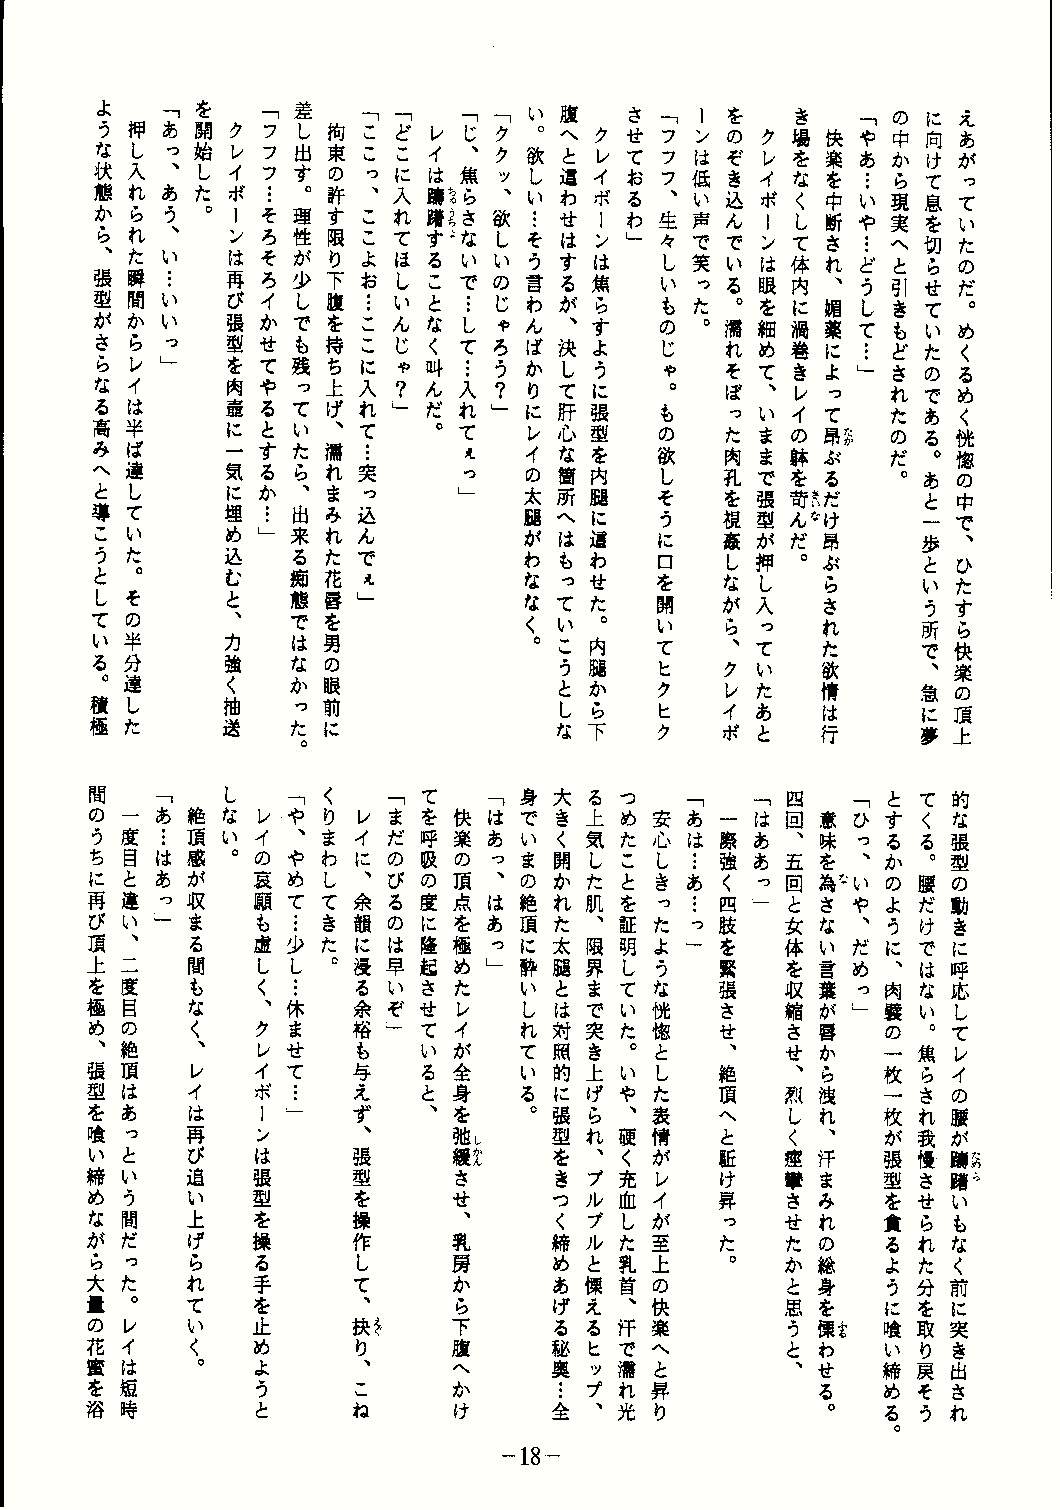 えあがっていたのだ。めくるめく恍惚の中で、ひたすら快楽の頂上
に向けて息を切らせていたのである。あと一歩という所で、急に夢
の中から現実へと引きもどされたのだ。
「やあ…いや…どうして…」
快楽を中断され、媚薬によって昂ぶるだけ昂ぶらされた欲情は行
き場をなくして体内に渦巻きレイの躰を苛んだ。
クレイボーンは眼を細めて、いままで張型が押し入っていたあと
をのぞき込んでいる。濡れそぼった肉孔を視姦しながら、クレイボ
ーンは低い声で笑った。
「フフフ、生々しいものじゃ。もの欲しそうに口を開いてヒクヒク
させておるわ」
クレイボーンは焦らすように張型を内腿に這わせた。内腿から下
腹へと這わせはするが、決して肝心な箇所へはもっていこうとしな
い。欲しい…そう言わんばかりにレイの太腿がわななく。
「ククッ、欲しいのじゃろう？」
「じ、焦らさないで…して…入れてぇっ」
レイは躊躇することなく叫んだ。
「どこに入れてほしいんじゃ？」
「ここっ、ここよお…ここに入れて…突っ込んでぇ」
拘束の許す限り下腹を持ち上げ、濡れまみれた花唇を男の眼前に
差し出す。理性が少しでも残っていたら、出来る痴態ではなかった。
「フフフ…そろそろイかせてやるとするか…」
クレイボーンは再び張型を肉壺に一気に埋め込むと、力強く抽送
を開始した。
「あっ、あう、い…いいっ」
押し入れられた瞬間からレイは半ば達していた。その半分達した
ような状態から、張型がさらなる高みへと導こうとしている。積極
的な張型の動きに呼応してレイの腰が躊躇いもなく前に突き出され
てくる。腰だけではない。焦らされ我慢させられた分を取り戻そう
とするかのように、肉襞の一枚一枚が張型を貪るように喰い締める。
「ひっ、いや、だめっ」
意味を為さない言葉が唇から洩れ、汗まみれの総身を慄わせる。
四回、五回と女体を収縮させ、烈しく痙攣させたかと思うと、
「はああっ」
一際強く四肢を緊張させ、絶頂へと駈け昇った。
「あは…あ…っ」
安心しきったような恍惚とした表情がレイが至上の快楽へと昇り
つめたことを証明していた。いや、硬く充血した乳首、汗で濡れ光
る上気した肌、限界まで突き上げられ、プルプルと慄えるヒップ、
大きく開かれた太腿とは対照的に張型をきつく締めあげる秘奥…全
身でいまの絶頂に酔いしれている。
「はあっ、はあっ」
快楽の頂点を極めたレイが全身を弛緩させ、乳房から下腹へかけ
てを呼吸の度に隆起させていると、
「まだのびるのは早いぞ」
レイに、余韻に浸る余裕も与えず、張型を操作して、抉り、こね
くりまわしてきた。
「や、やめて…少し…休ませて…」
レイの哀願も虚しく、クレイボーンは張型を操る手を止めようと
しない。
絶頂感が収まる間もなく、レイは再び追い上げられていく。
「あ…はあっ」
一度目と違い、二度目の絶頂はあっという間だった。レイは短時
間のうちに再び頂上を極め、張型を喰い締めながら大量の花蜜を浴
－18－